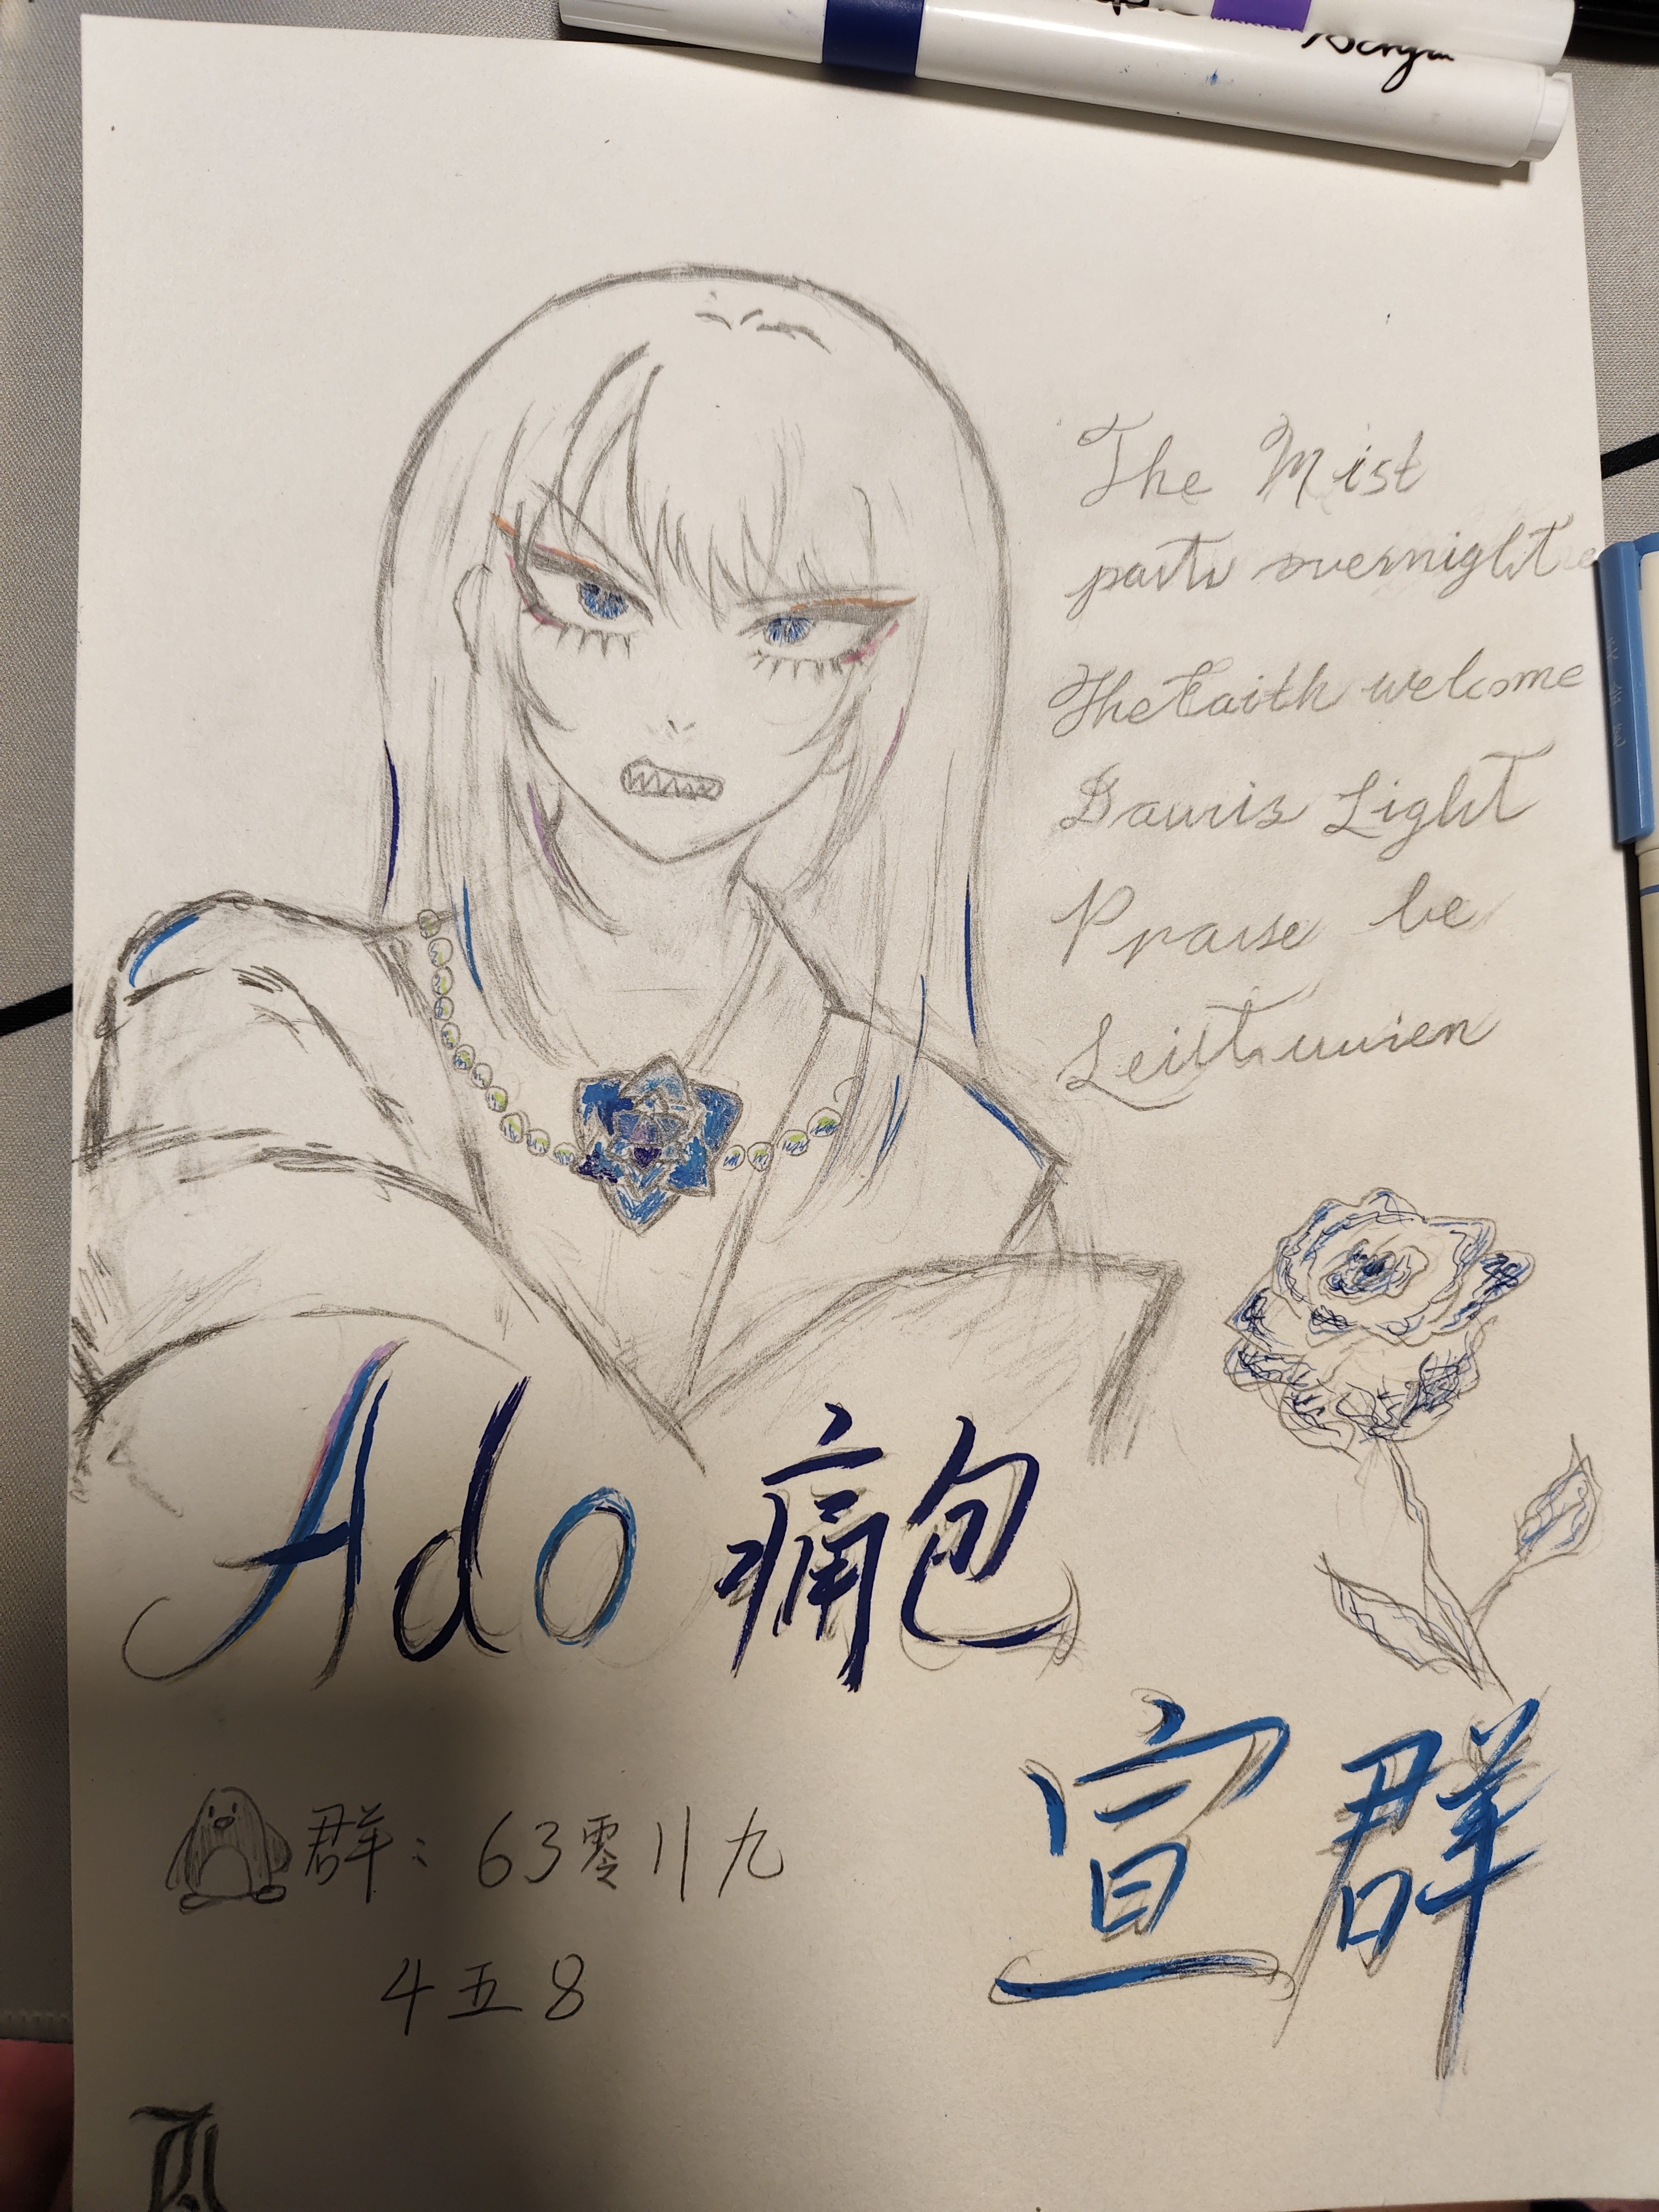 The Mist
parts overnight
The Faith welcome
Light
Praise be
Ado 痛包
宣群
群: 63零八九
4五8